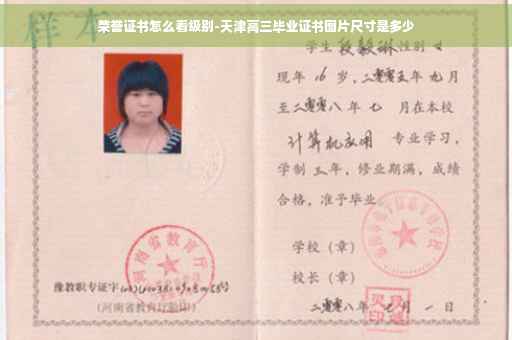 荣誉证书怎么看级别-天津高三毕业证书图片尺寸是多少
样本
学生 段毅琳 性别 女
现年 16 岁,二零零五年 九 月
至二零零八年 七 月在本校
计算机应用 专业学习,
学制 三 年,修业期满,成绩
合格,准予毕业
学校(章)
校长(章)
二零零八年 月 一 日
河南省教育厅
豫教职专证字
(河南省教育厅验印)